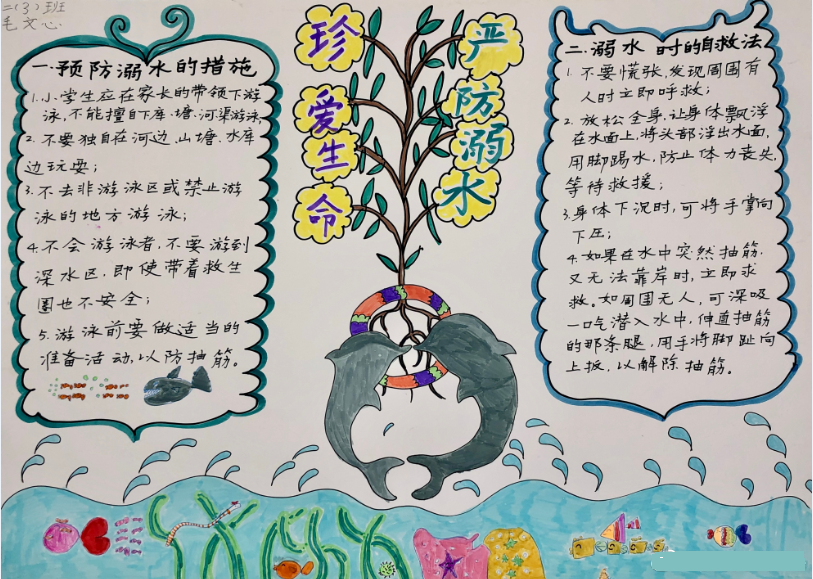 二(3)班
毛文心
珍爱生命
严防溺水
一.预防溺水的措施
1.小学生应在家长的带领下游
泳,不能擅自下库、塘、河渠游泳
2.不要独自在河边、山塘、水库
边玩耍;
3.不去非游泳区或禁止游
泳的地方游泳;
4.不会游泳者,不要游到
深水区,即使带着救生
圈也不安全;
5.游泳前要做适当的
准备活动,以防抽筋。
二.溺水时的自救法
1.不要慌张,发现周围有
人时立即呼救;
2.放松全身,让身体飘浮
在水面上,将头部浮出水面,
用脚踢水,防止体力丧失,
等待救援;
3.身体下沉时,可将手掌向
下压;
4.如果在水中突然抽筋,
又无法靠岸时,立即求
救。如周围无人,可深吸
一口气潜入水中,伸直抽筋
的那条腿,用手将脚趾向
上扳,以解除抽筋。